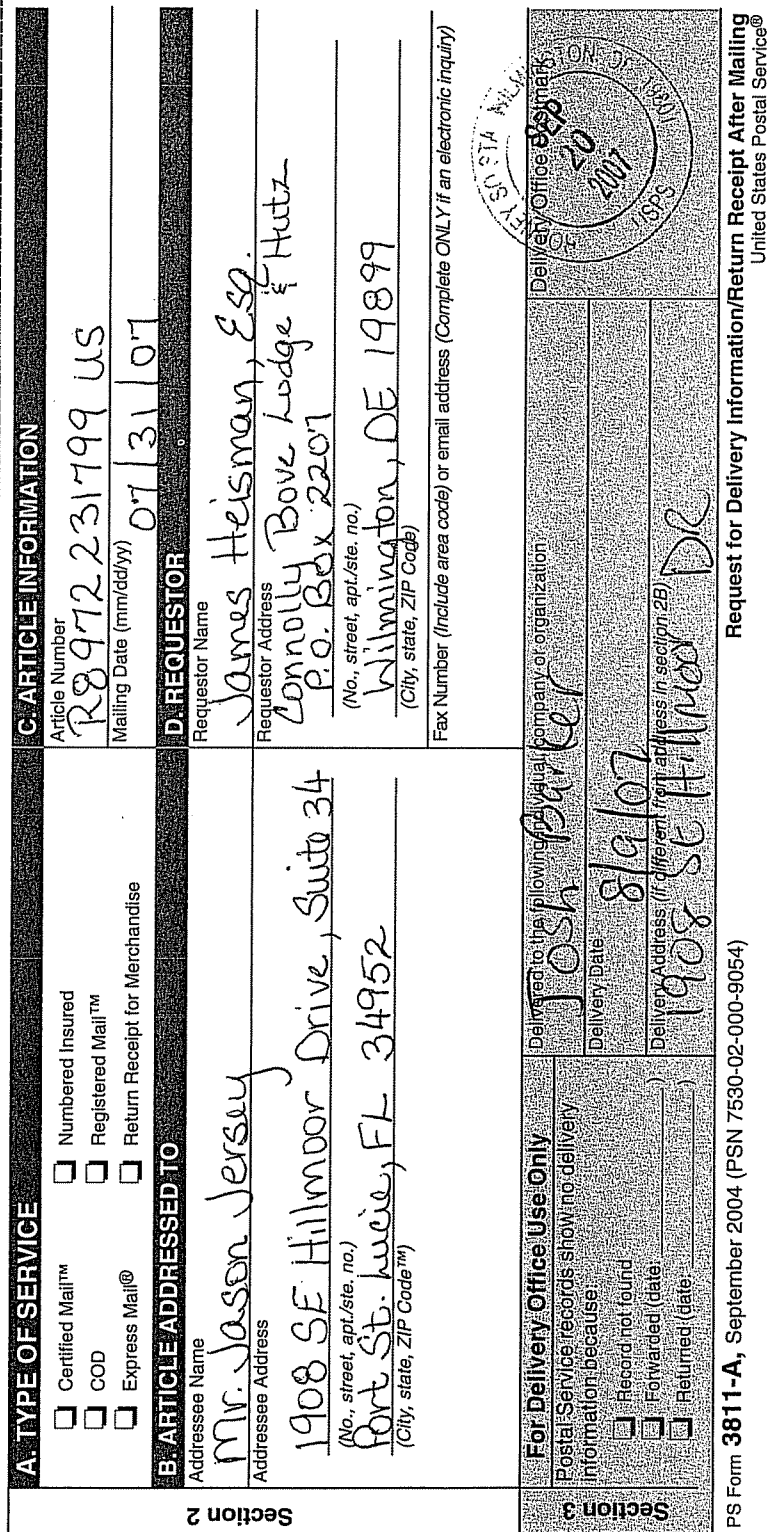 Section 2
A. TYPE OF SERVICE
☐ Certified Mail™ ☐ Numbered Insured
☐ COD ☐ Registered Mail™
☐ Express Mail® ☐ Return Receipt for Merchandise
C. ARTICLE INFORMATION
Article Number
R8972231799 US
Mailing Date (mm/dd/yy) 07/31/07
B. ARTICLE ADDRESSED TO
Addressee Name
Mr. Jason Jersey
Addressee Address
1908 SE Hillmoor Drive, Suite 34
(No., street, apt./ste. no.)
Port St. Lucie, FL 34952
(City, state, ZIP Code™)
D. REQUESTOR
Requestor Name
James Heisman, Esq.
Requestor Address
Connolly Bove Lodge & Hutz
P.O. Box 2207
(No., street, apt./ste. no.)
Wilmington, DE 19899
(City, state, ZIP Code)
Fax Number (Include area code) or email address (Complete ONLY if an electronic inquiry)
Section 3
For Delivery Office Use Only
Postal Service records show no delivery
information because:
☐ Record not found
☐ Forwarded (date )
☐ Returned (date )
Delivered to the following individual, company or organization
Josh Parker
Delivery Date
8/9/07
Delivery Address (If different from address in section 2B)
1908 SE Hillmoor DR
Delivery Office Postmark
SEP
20
2007
USPS
PS Form 3811-A, September 2004 (PSN 7530-02-000-9054)
Request for Delivery Information/Return Receipt After Mailing
United States Postal Service®